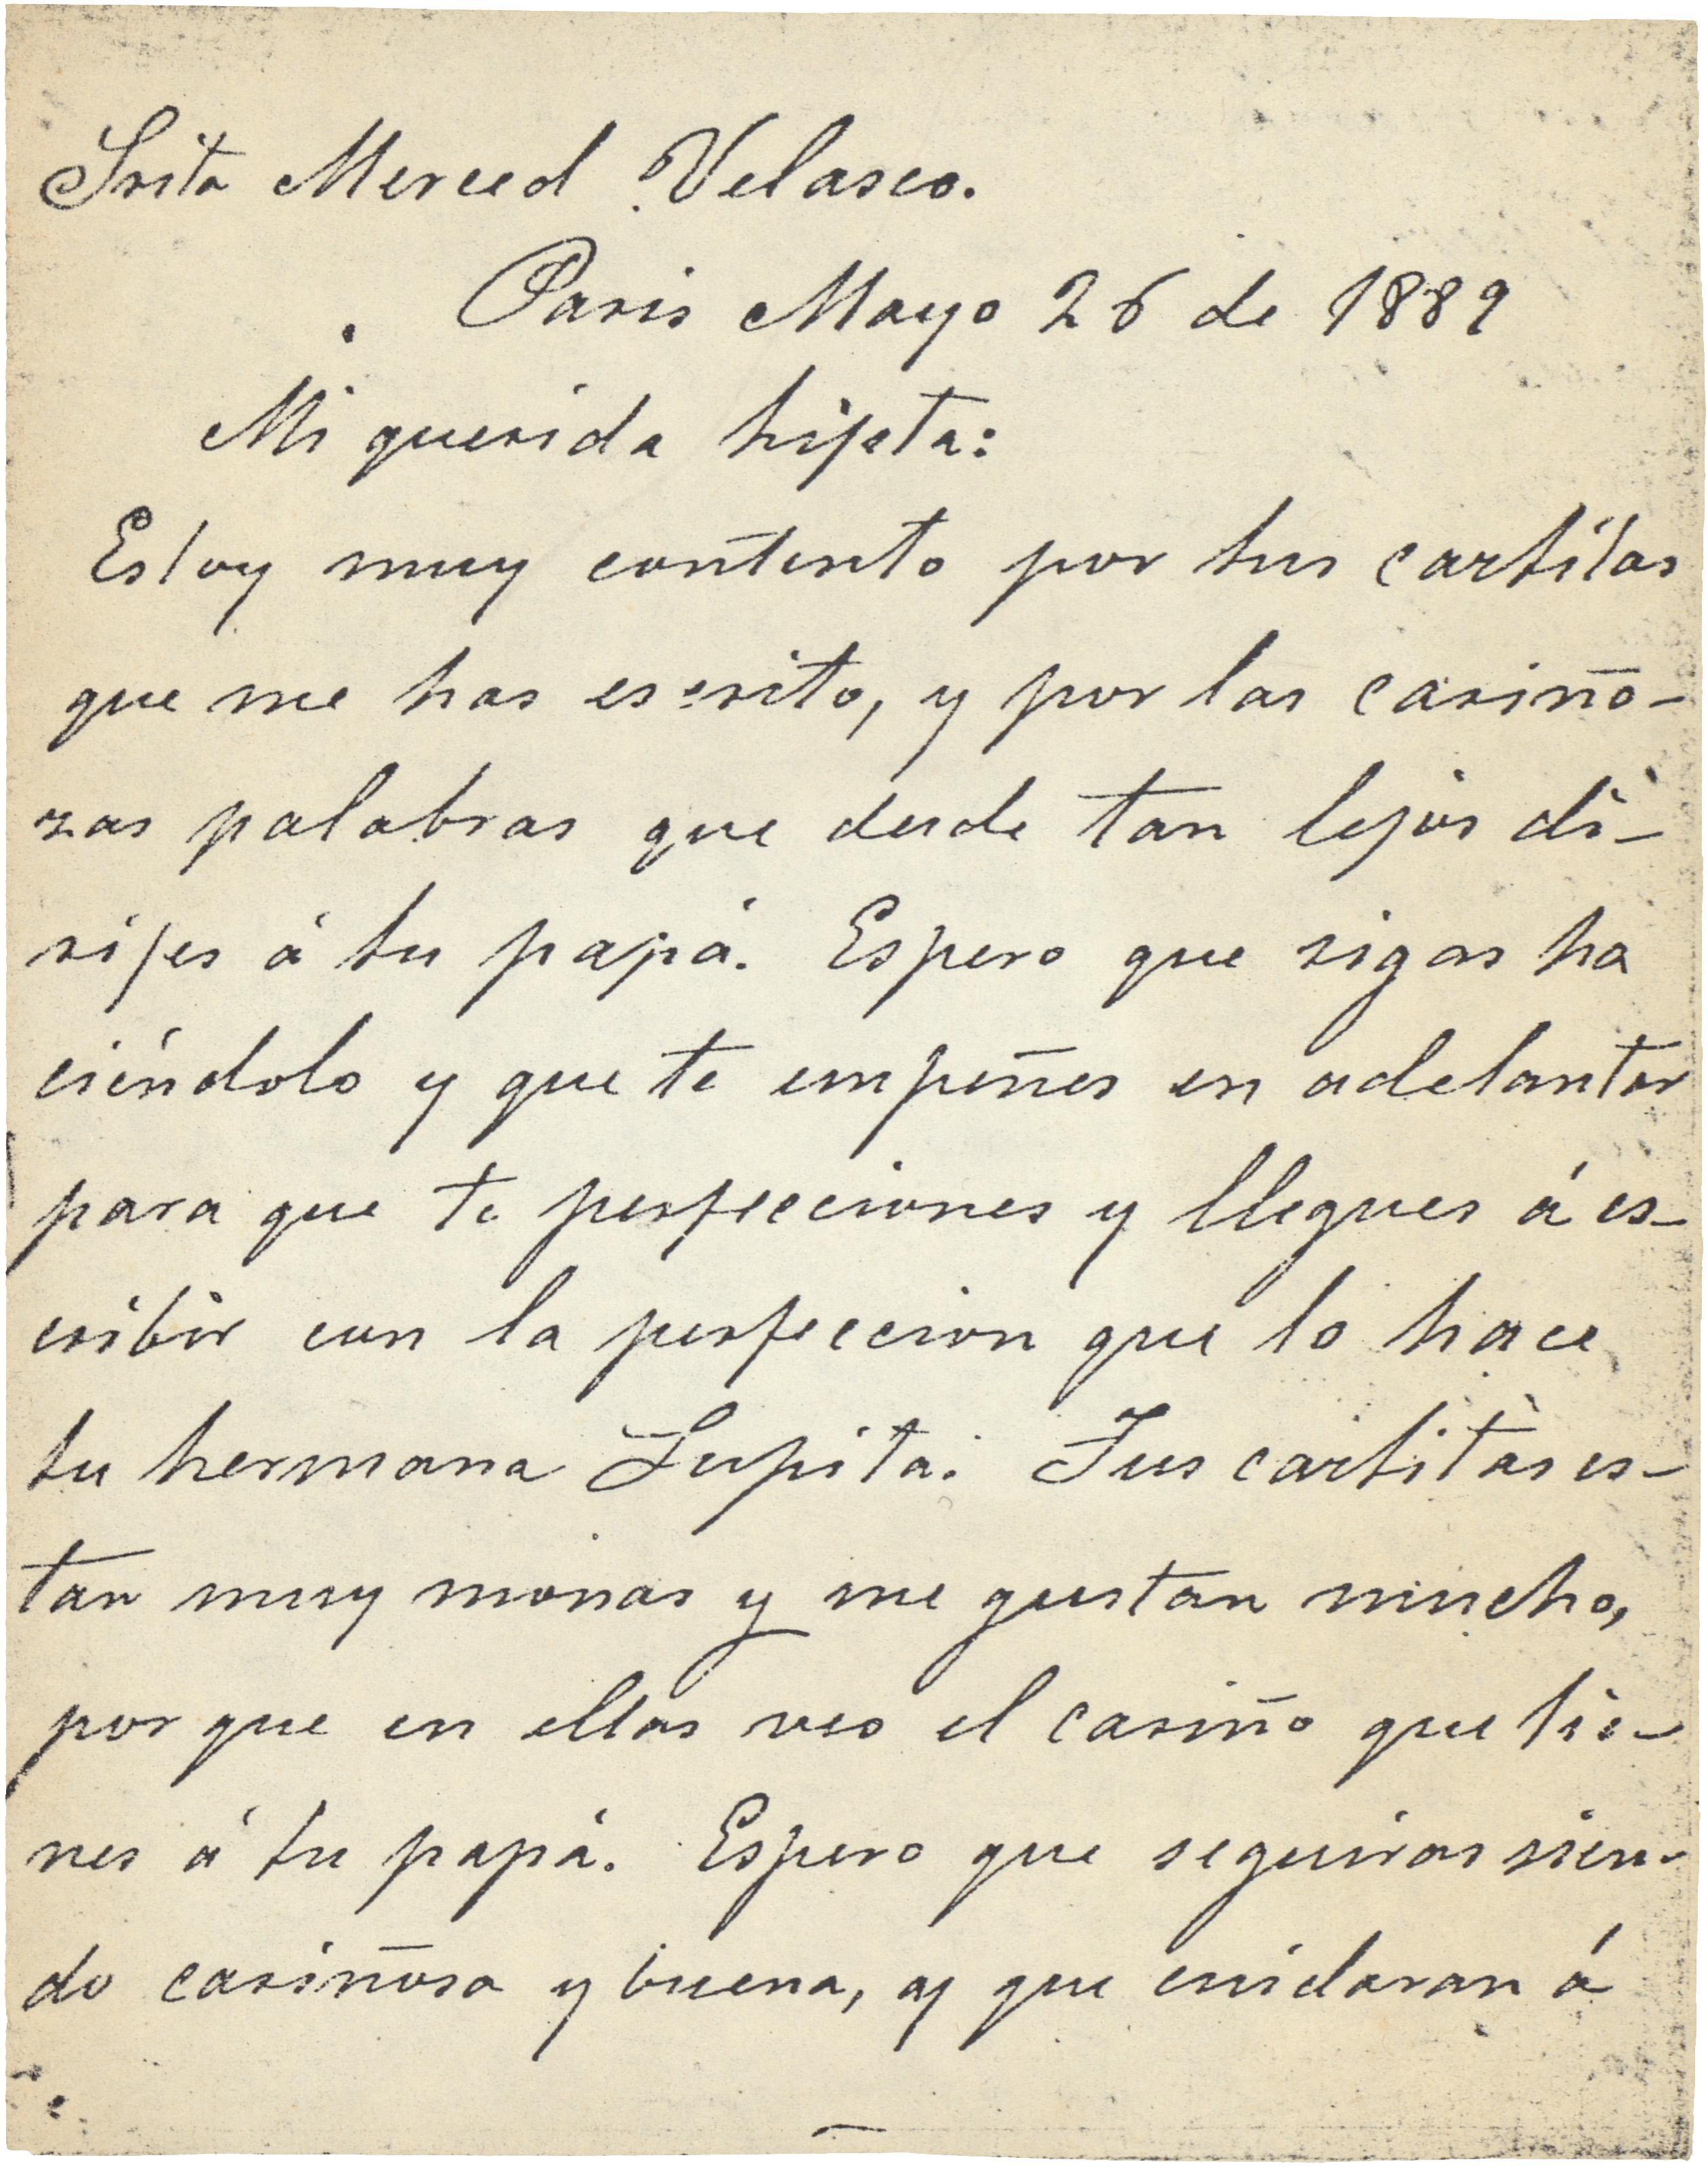 Srita Merced Velasco.
Paris Mayo 26 de 1889
Mi querida hijeta:
Estoy muy contento por tus cartitas
que me has escrito, y por las cariño-
zas palabras que desde tan lejos di-
rijes á tu papá. Espero que sigas ha
ciéndolo y que te empeñes en adelantar
para que te perfecciones y llegues á es-
cribir con la perfeccion que lo hace
tu hermana Lupita. Tus cartitas es-
tan muy monas y me gustan mucho,
por que en ellas veo el cariño que tie-
nes á tu papá. Espero que seguiras sien-
do cariñosa y buena, y que cuidaran á